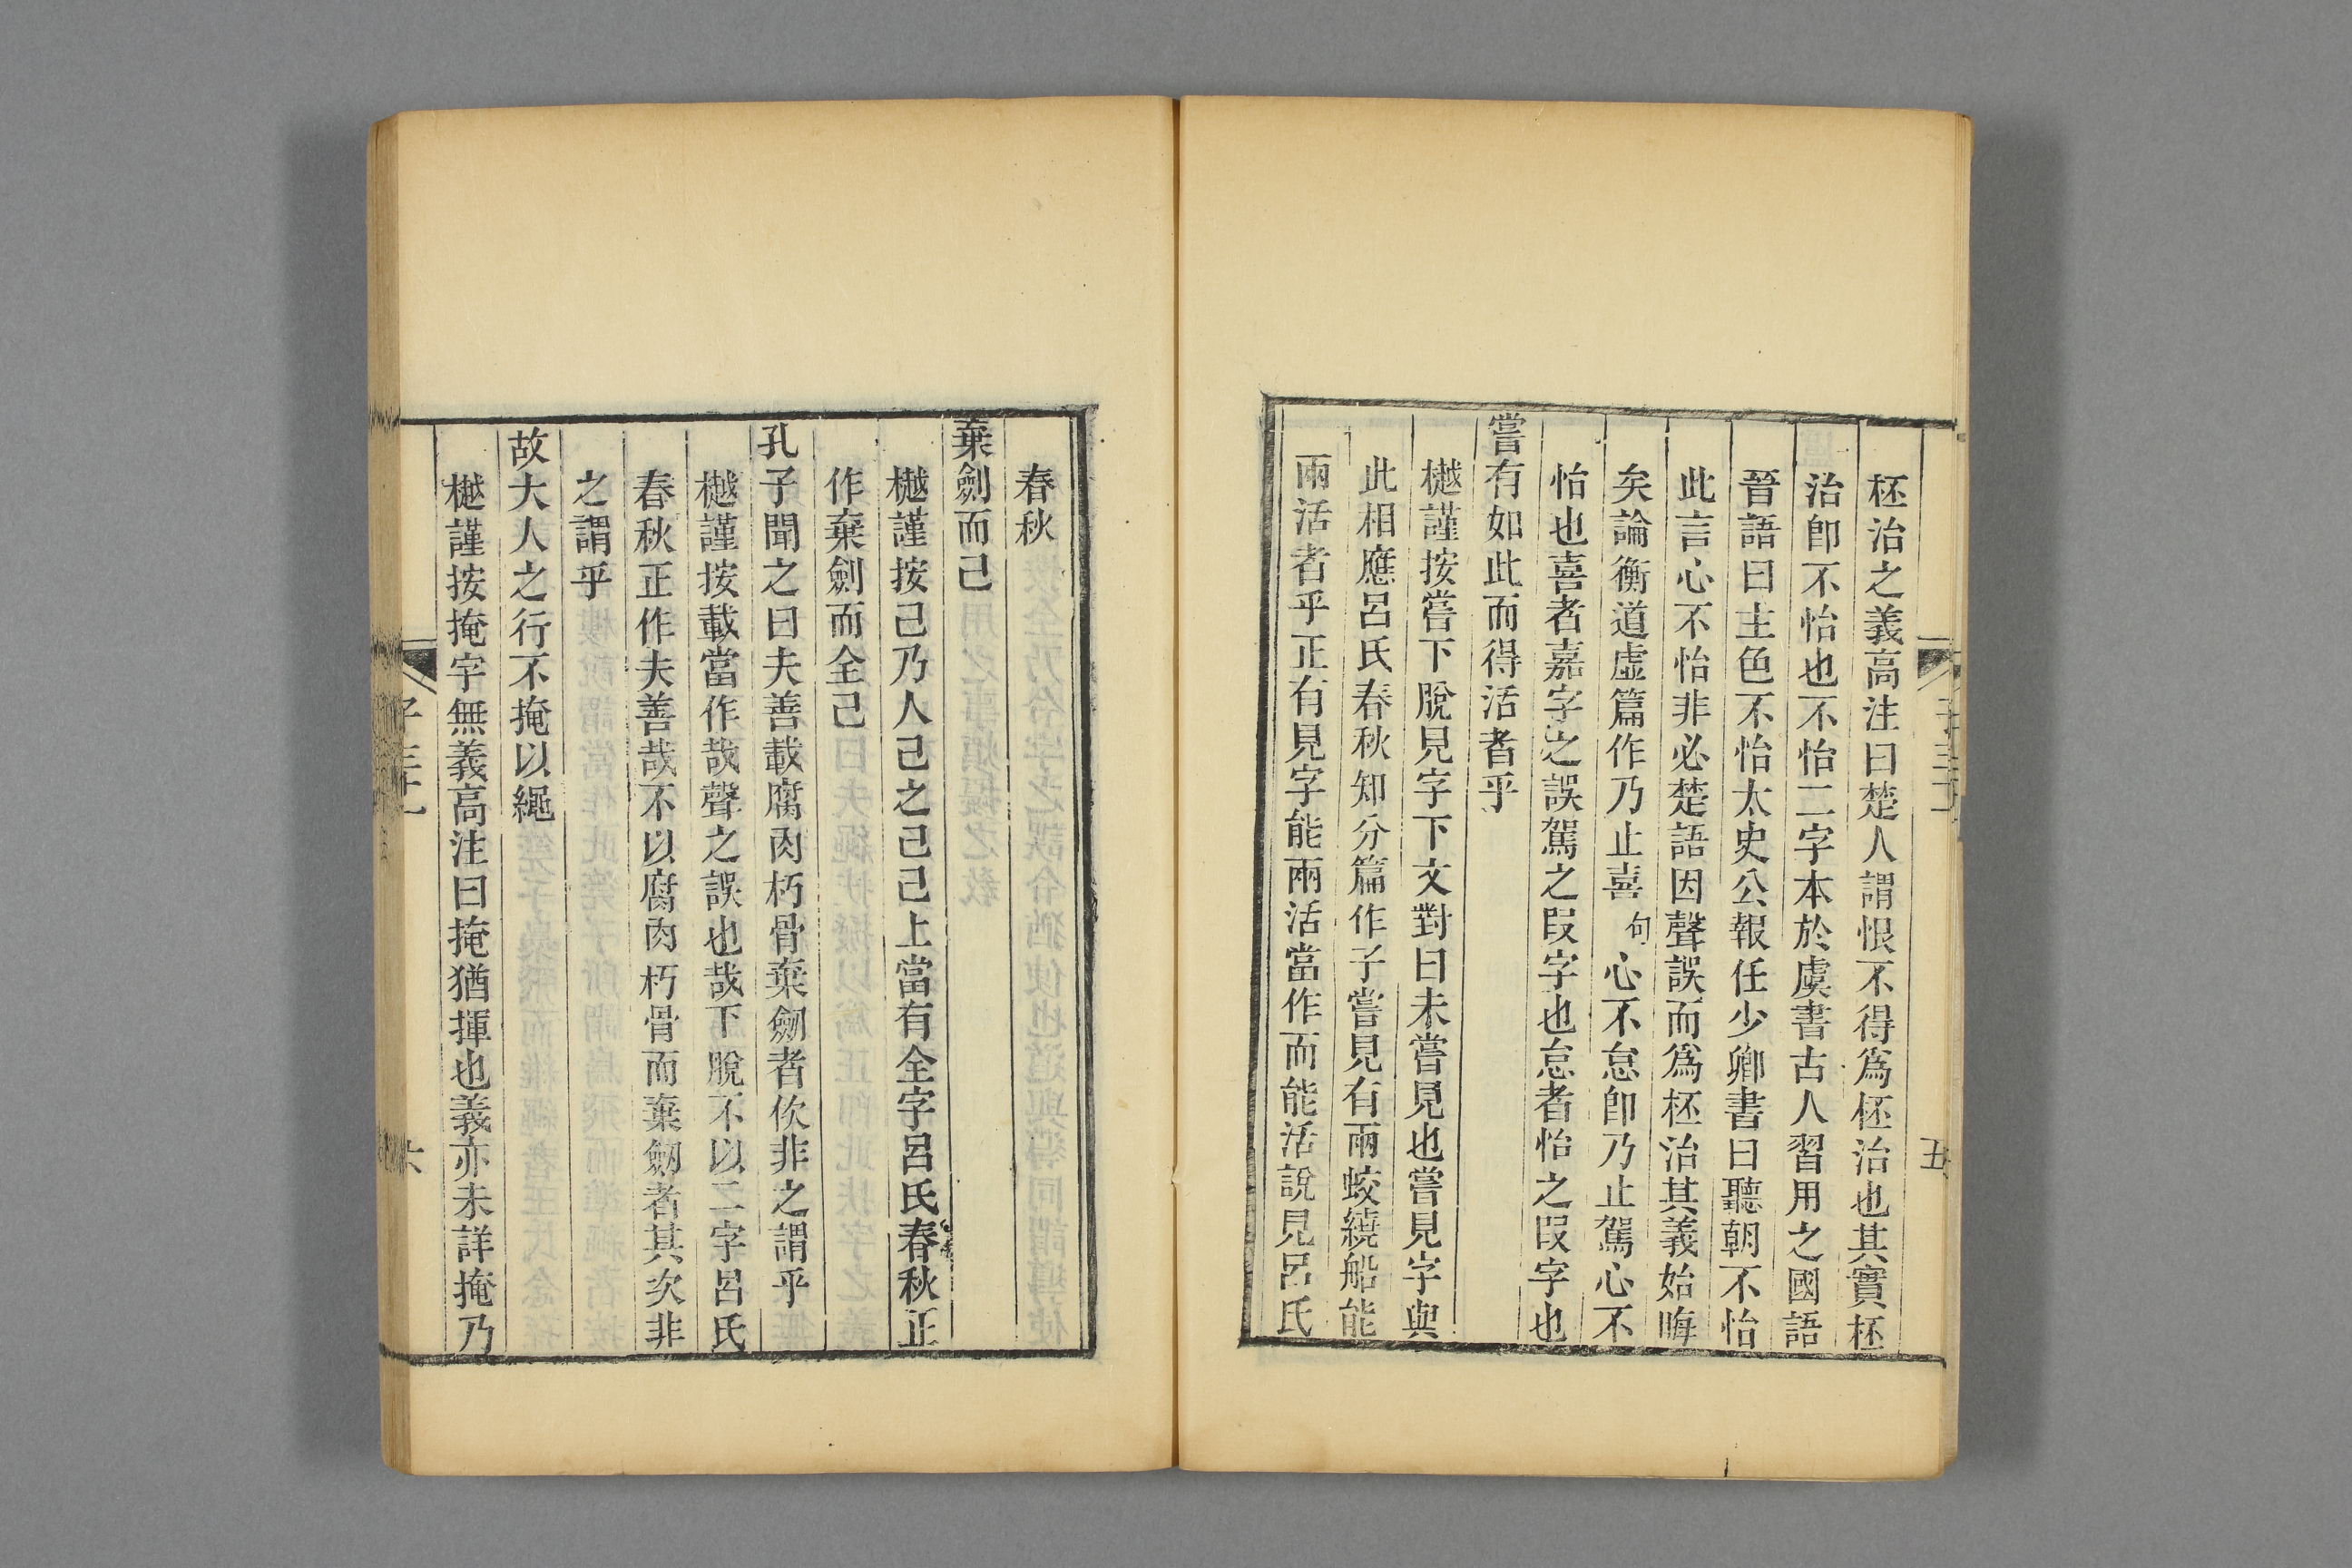 柸治之義高注曰楚人謂恨不得爲柸治也其實柸
治卽不怡也不怡二字本於虞書古人習用之國語
晉語曰主色不怡太史公報任少卿書曰聽朝不怡
此言心不怡非必楚語因聲誤而爲柸治其義始晦
矣論衡道虛篇作乃止喜句心不怠卽乃止駕心不
怡也喜者嘉字之誤駕之叚字也怠者怡之叚字也
嘗有如此而得活者乎
樾謹按嘗下脫見字下文對曰未嘗見也嘗見字與
此相應呂氏春秋知分篇作子嘗見有兩蛟繞船能
兩活者乎正有見字能兩活當作而能活說見呂氏
五
春秋
棄劍而己
樾謹按己乃人己之己己上當有全字呂氏春秋正
作棄劍而全己
孔子聞之曰夫善載腐肉朽骨棄劒者佽非之謂乎
樾謹按載當作哉聲之誤也哉下脫不以二字呂氏
春秋正作夫善哉不以腐肉朽骨而棄劒者其次非
之謂乎
故大人之行不掩以繩
樾謹按掩字無義高注曰掩猶揮也義亦未詳掩乃
六